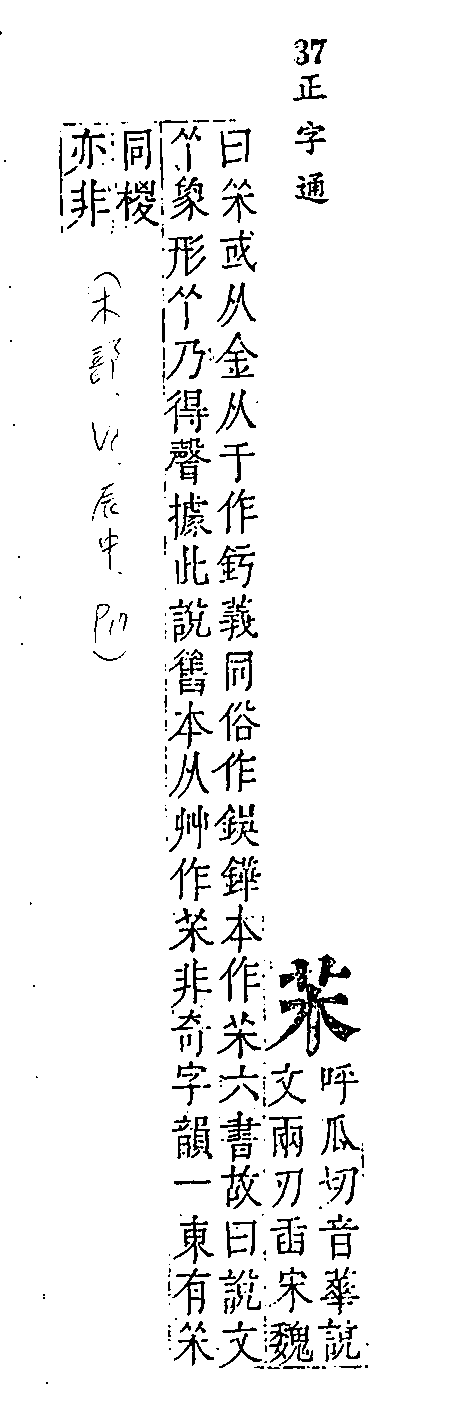 37正字通
茉
呼瓜切音華說
文兩刃臿宋魏
曰茉或从金从于作釫義同俗作鋘鏵本作茉六書故曰說文
象形乃得聲據此說舊本从艸作茉非奇字韻一東有茉
同椶
亦非
(木部、VI、辰中、P17)